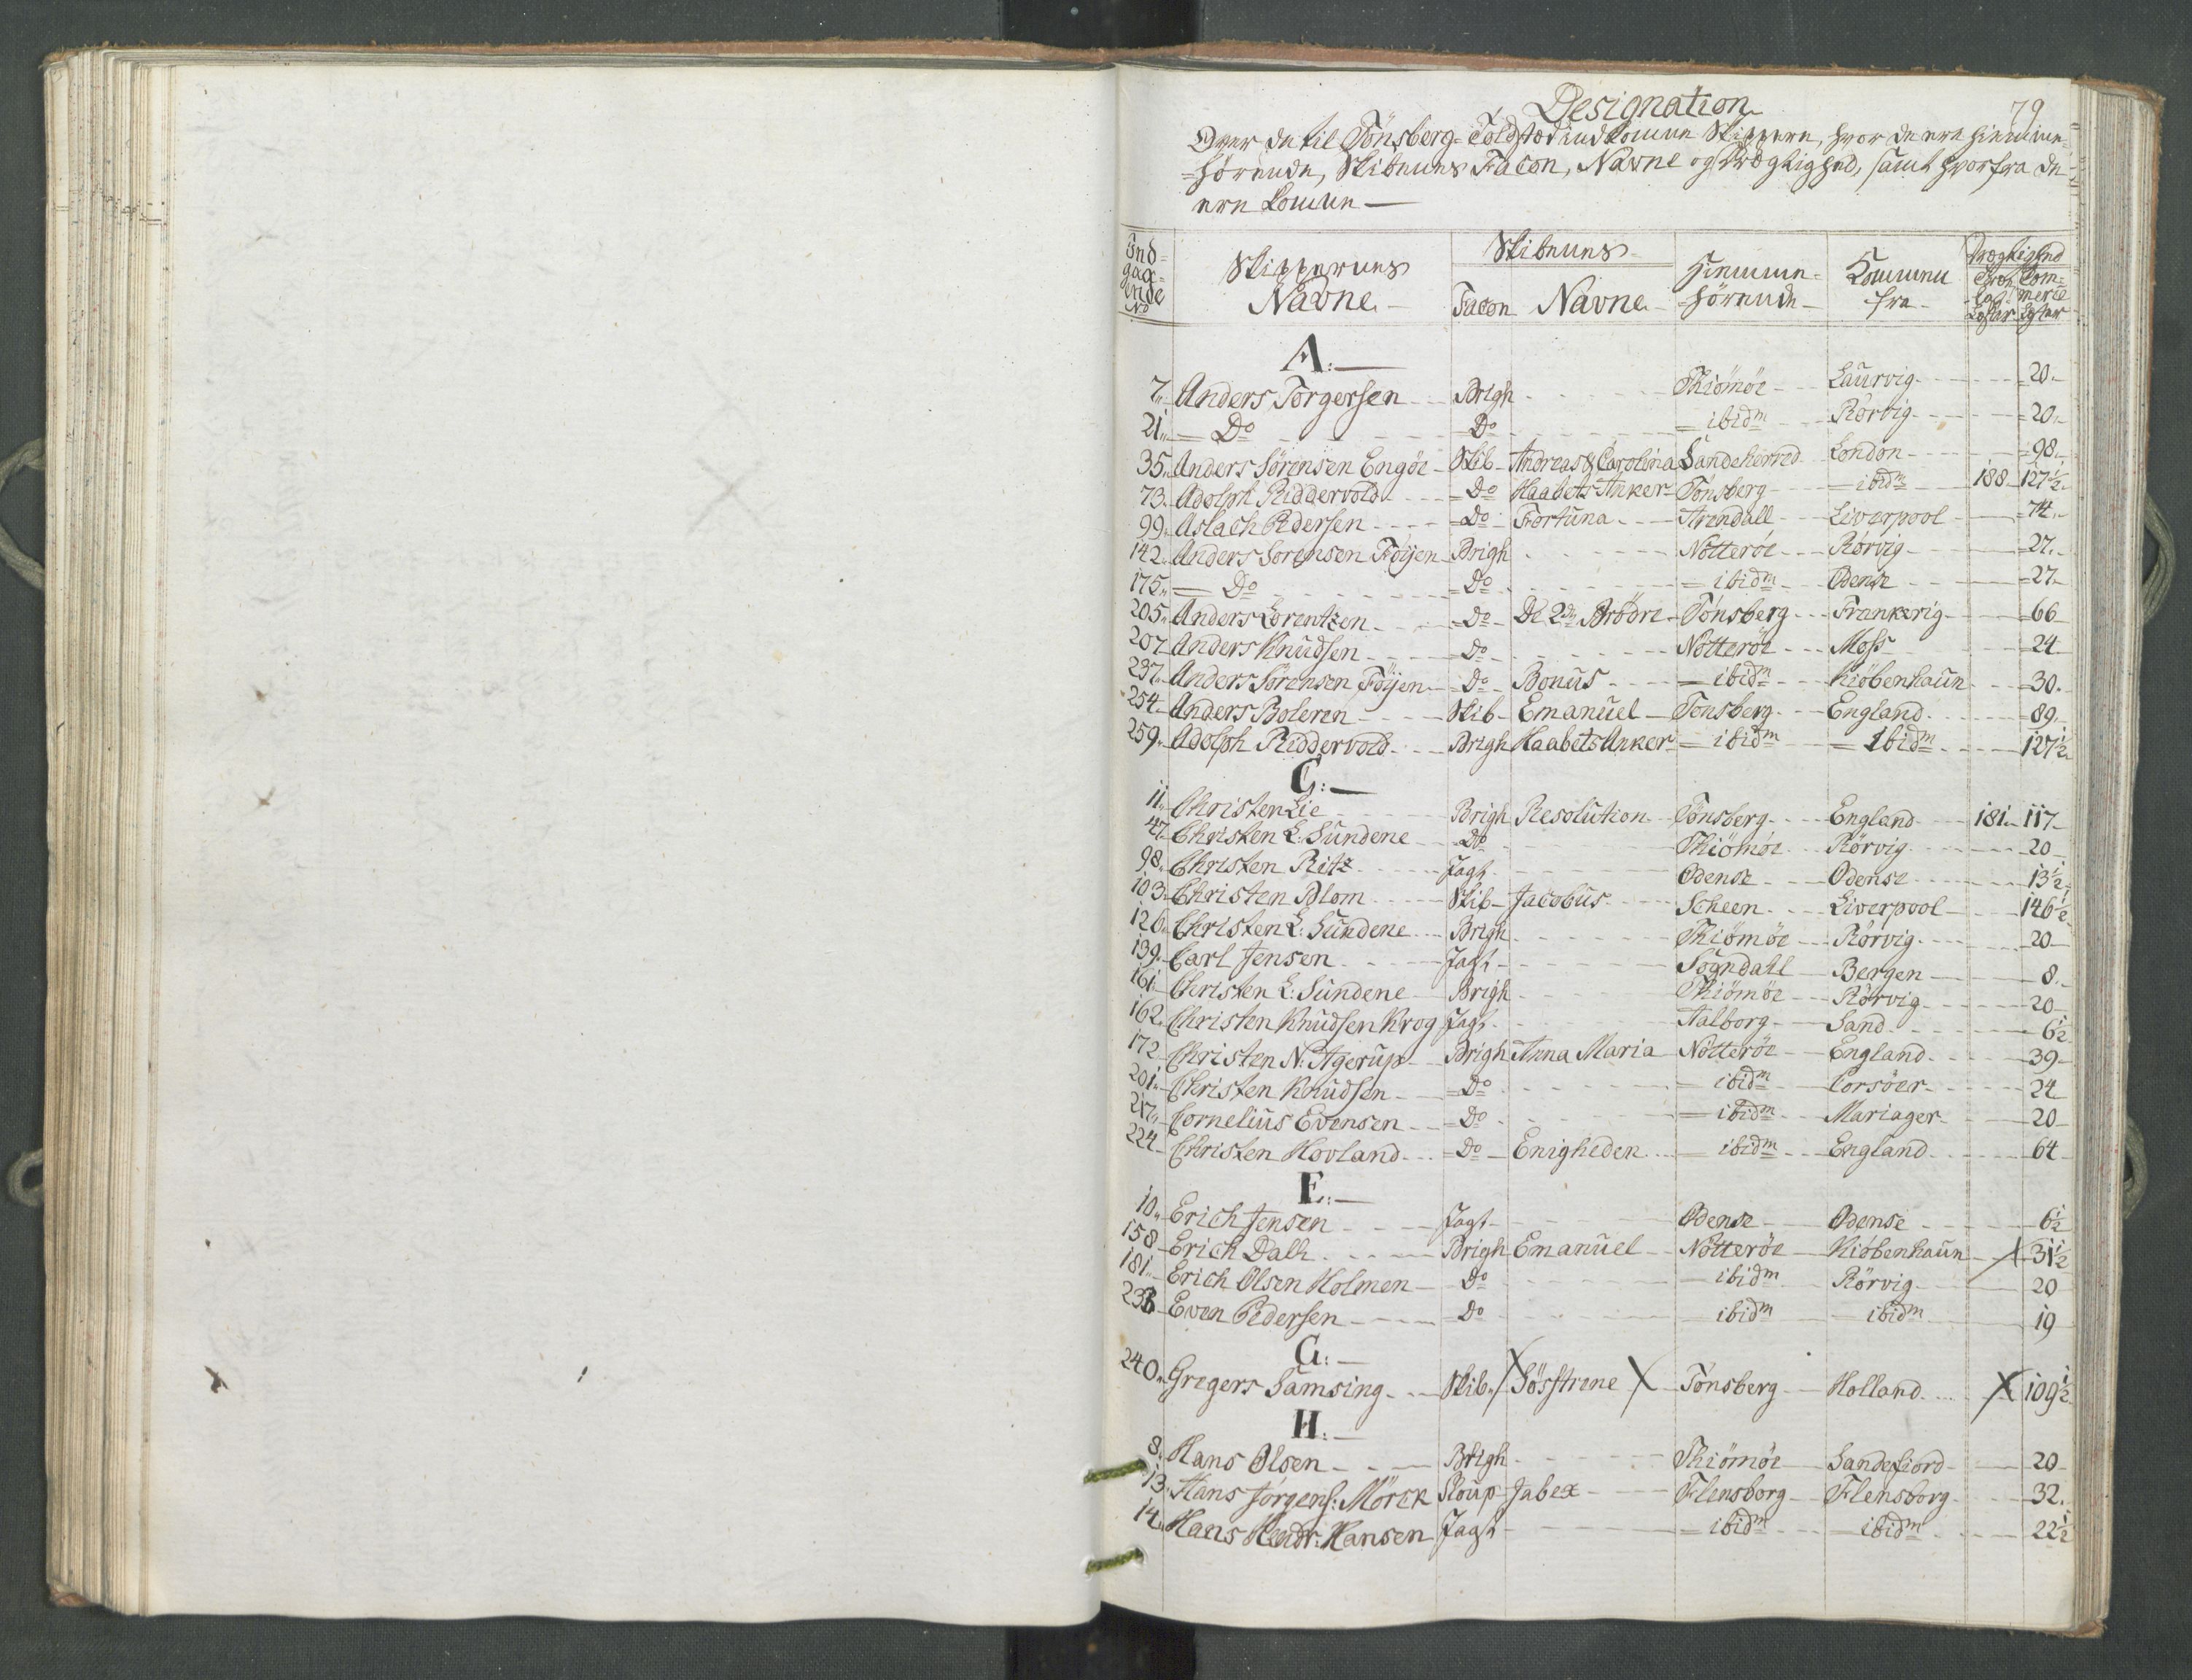 79
Designation
Over de til Tönsberg Toldsted indkomne Skippere, hvor de ere hiemme=
=hörende, Skibenes Facon, Navne og Drægtighed, samt hvorfra de
ere komne —
Ind=
gaa=
ende
No
Skippernes
Navne.
Skibenes
Facon
Navne
Hiemme=
=hörende
Kommen
fra
Drægtighed
Træ=
Last
Læster
Com=
merce
Læster
A:
7. Anders Torgersen Brigh Thiömöe Laurvig 20.
21. Do Do ibidm Rörvig 20.
35. Anders Sörensen Engöe Skib Andreas & Carolina Sandeherred London 98.
73. Adolph Riddervold Do Haabets Anker Tönsberg ibidm 188 127½
99. Aslach Pedersen Do Fortuna Arendall Liverpool 74.
142. Anders Sörensen Föyen Brigh Nötteröe Rörvig 27.
175. Do Do ibidm Odense 27
205. Anders Lorentzen Do De 2de Brödre Tönsberg Frankerig 66
207 Anders Knudsen Do Nötteröe Moss 24
237. Anders Sörensen Föyen Do Bonus ibidm Kiöbenhaun 30.
254. Anders Boleren Skib Emanuel Tönsberg England 89.
259. Adolph Riddervold Brigh Haabets Anker ibidm ibidm 127½
C:
11. Christen Lie Brigh Resolution Tönsberg England 181. 117
47. Christen L: Sundene Do Thiömöe Rörvig 20
98. Christen Ritz Jagt Odense Odense 13½
103. Christen Blom Skib Jacobus Scheen Liverpool 146½
126. Christen L: Sundene Brigh Thiömöe Rörvig 20
139. Carl Jensen Jagt Sogndahl Bergen 8.
161. Christen L: Sundene Brigh Thiömöe Rörvig 20
162. Christen Knudsen Krog Jagt Aalborg Sand 6½
172 Christen N: Agerup Brigh Anna Maria Nötteröe England 39
201. Christen Knudsen Do ibidm Corsöer 24
217. Cornelius Evensen Do ibidm Mariager 20
224 Christen Hovland Do Enigheden ibidm England 64
E:
10. Erich Jensen Jagt Odense Odense 6½
158 Erich Dahl Brigh Emanuel Nötteröe Kiöbenhaun 31½
181. Erich Olsen Holmen Do ibidm Rörvig 20
233 Even Pedersen Do ibidm ibidm 19
G:
240. Gregers Samsing Skib Sösstrene Tönsberg Holland 109½
H:
8. Hans Olsen Brigh Thiömöe Sandefiord 20
13. Hans Jörgens: Mörck Sloup Jabex Flensborg Flensborg 32.
14. Hans Hendr: Hansen Jagt ibidm ibidm 22½